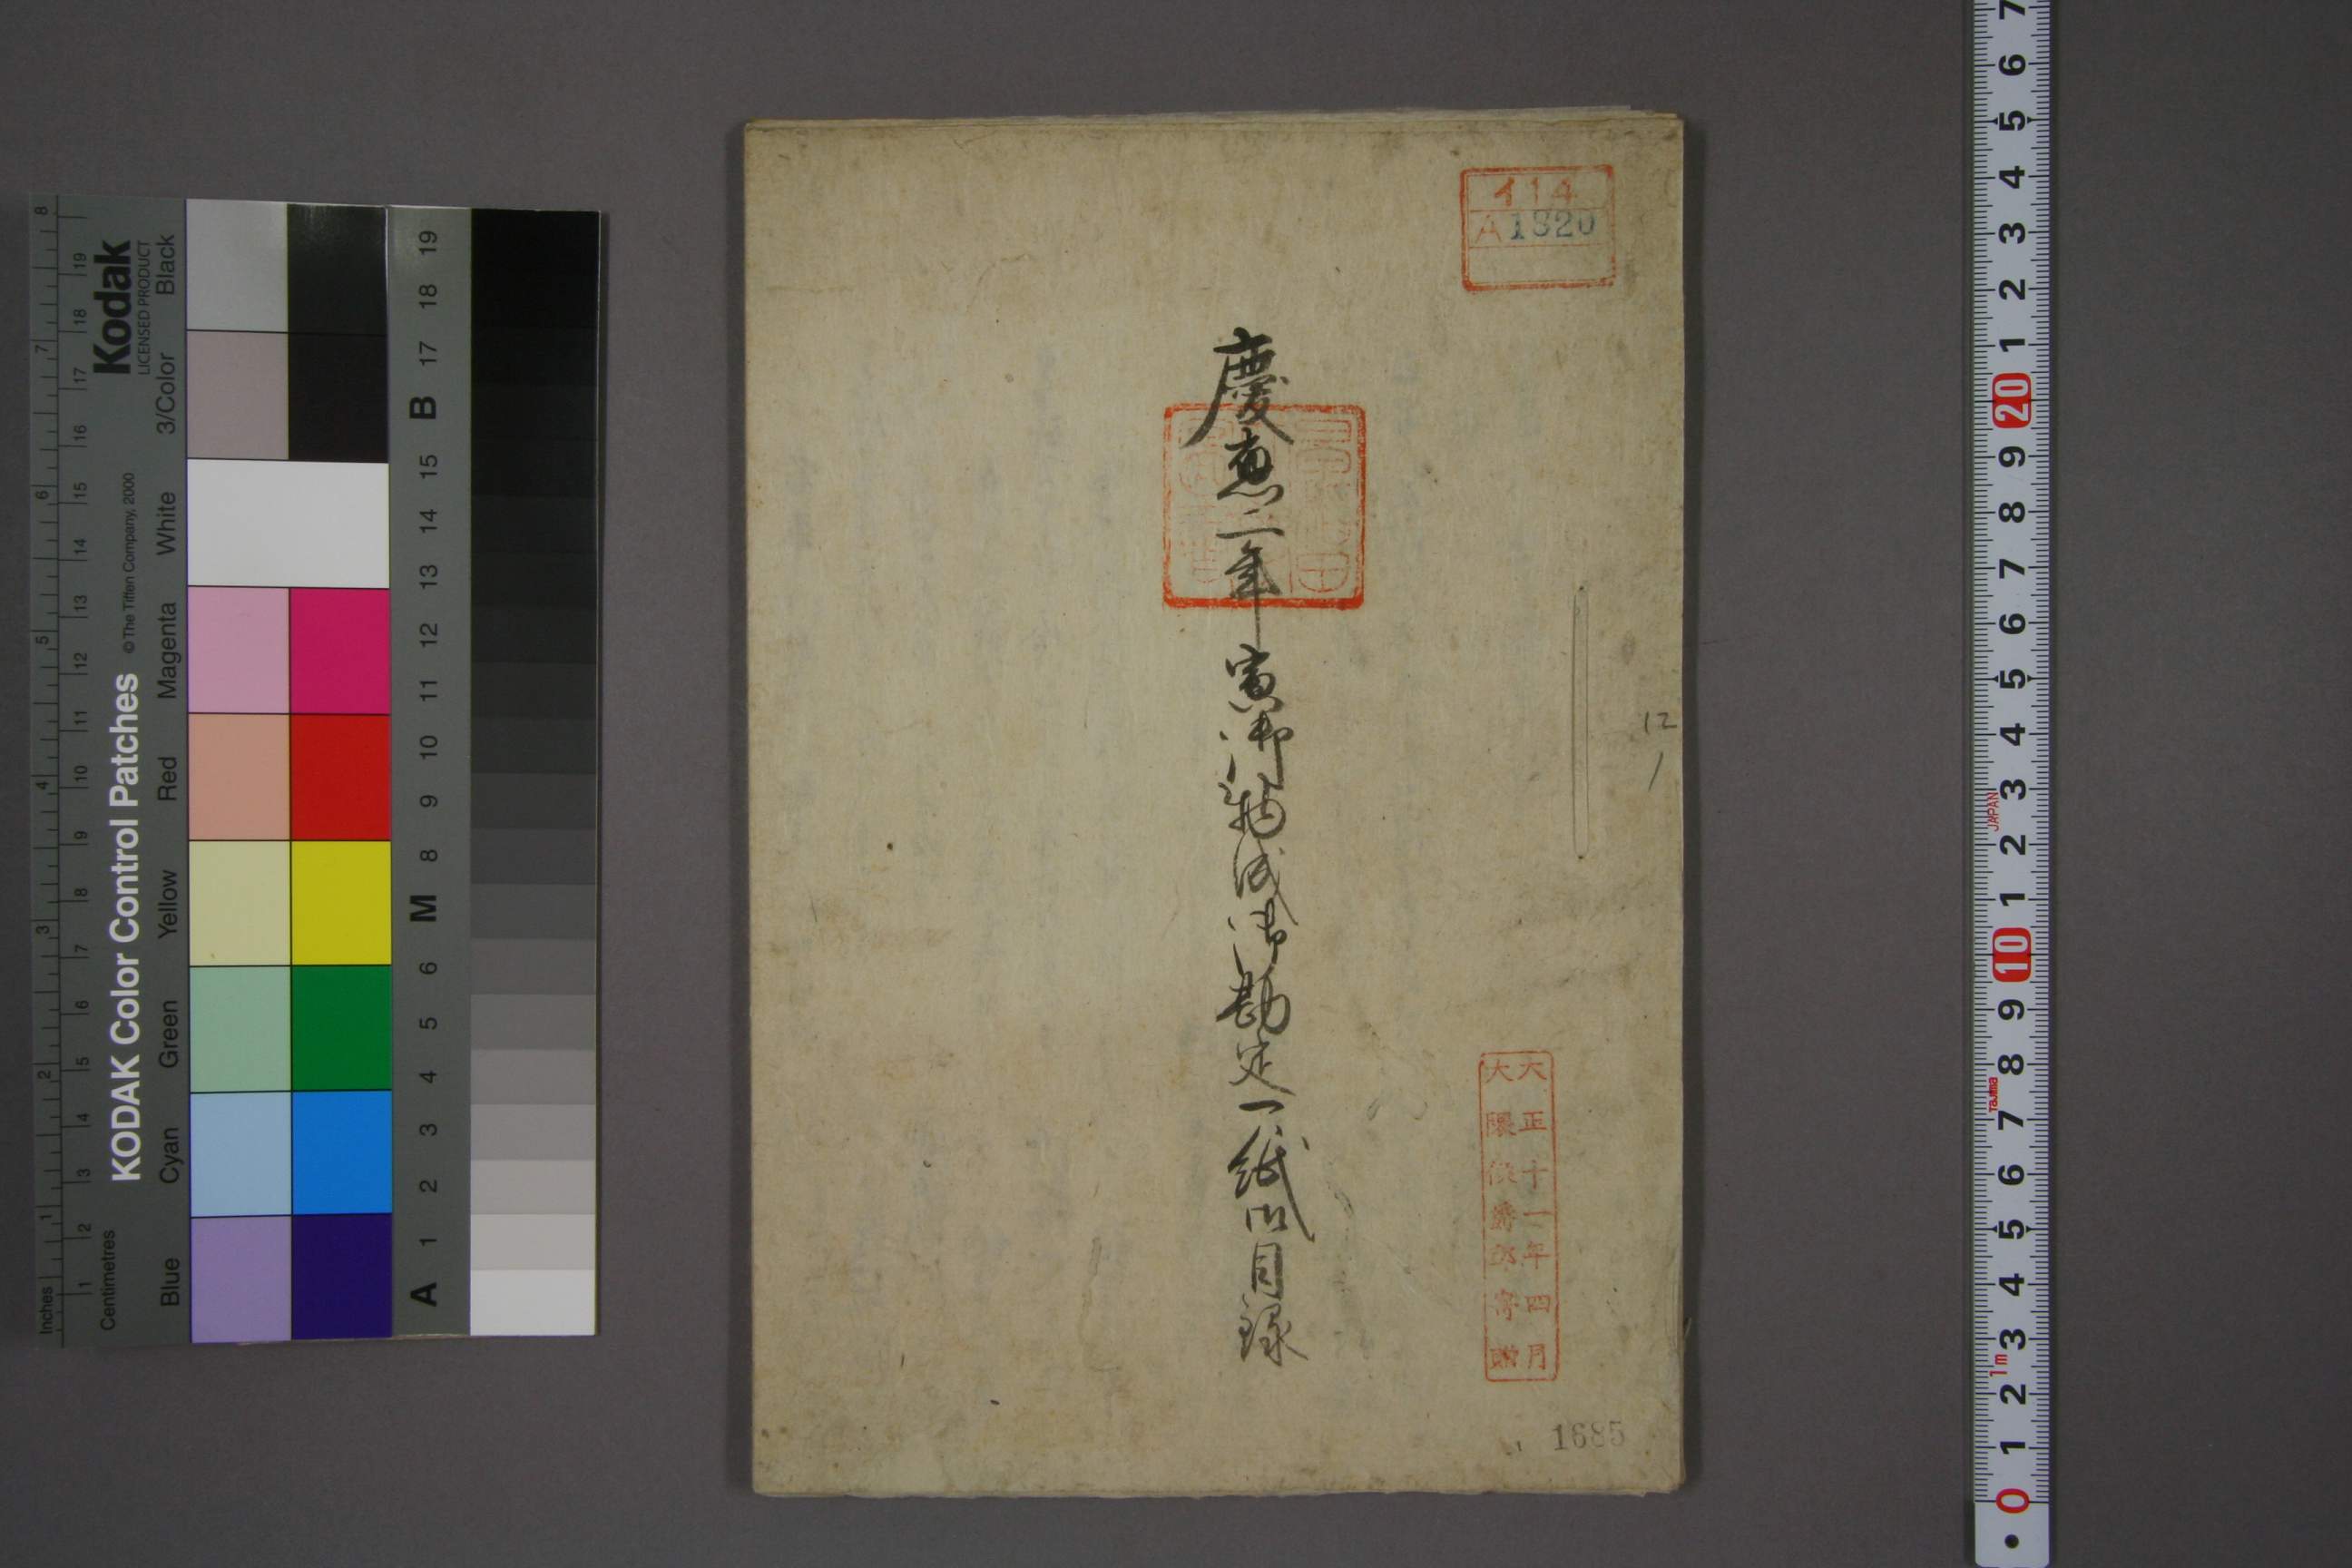 慶應二年寅御物成御勘定一紙御目録
イ14
A1820
大正十一年四月
大隈侯爵邸寄贈
12
1685
Kodak
LICENSED PRODUCT
KODAK Color Control Patches © The Tiffen Company, 2000
Blue Cyan Green Yellow Red Magenta White 3/Color Black
Inches 1 2 3 4 5 6 7 8
Centimetres 1 2 3 4 5 6 7 8 9 10 11 12 13 14 15 16 17 18 19
A 1 2 3 4 5 6 M 8 9 10 11 12 13 14 15 B 17 18 19
7 6 5 4 3 2 1 20 9 8 7 6 5 4 3 2 1 10 9 8 7 6 5 4 3 2 1 0
JAPAN
Tajima
1m